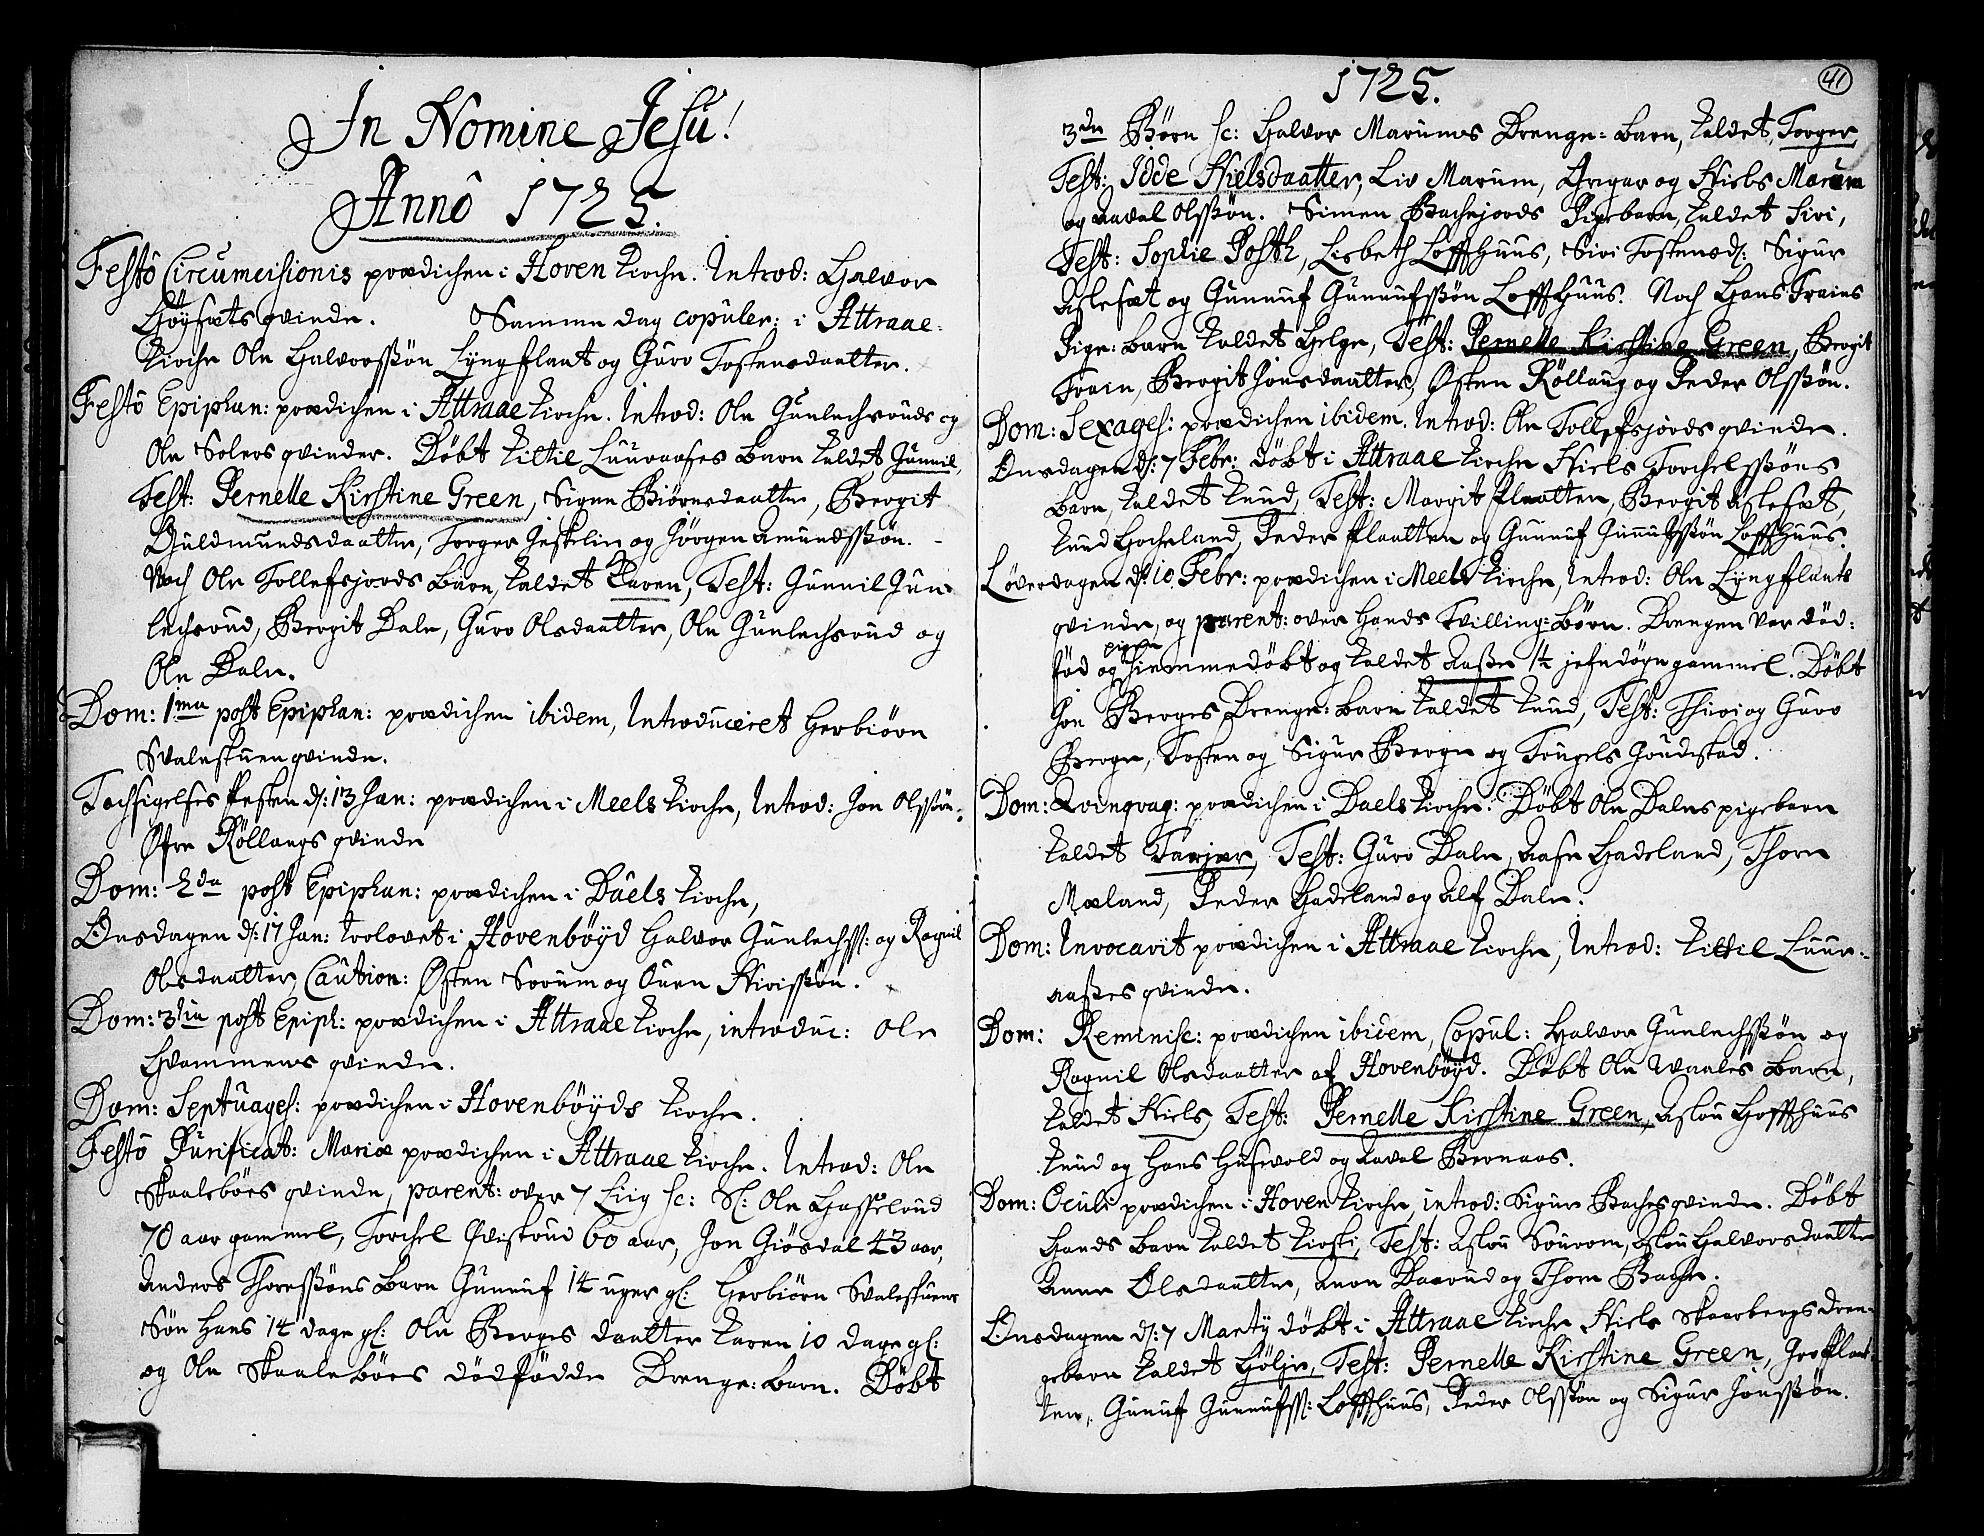 In Nomine Jesu!
Annô 1725.
Festô Circumcisionis prædichen i Hoven kirche. Introd: Halvor
Høÿsæts qvinde. Samme dag copuler: i Attraae:
kirche Ole Halvorsøn Lyngflaat og Guro Tostensdaatter.
Festô Epiphan: prædichen i Attraae kirche. Introd: Ole Gunlechsruds og
Ole Solers qvinder. Døbt Kittil Luuraases Barn kaldet Gunnil,
Test: Pernelle Kirstine Green, Signe Biørnsdaatter, Bergit
Guldmundsdaatter, Torger Jeskelin og Jörgen Amundssøn.
Noch Ole Tollefsjords Barn, kaldet Karen, Test: Gunnil Gun
lechsrud, Bergit Dale, Guro Olsdaatter, Ole Gunlechsrud og
Ole Dale.
Dom: 1ma post Epiphan: prædichen ibidem, Introduceret Herbiörn
Svaleskuen qvinde.
Tachsigelses Festen d: 13 Jan: prædichen i Meels kirche, Introd: Jon Olssøn
Øfre Röllangs qvinde
Dom: 2da post Epiphan: prædichen i Daels kirche,
Onsdagen d: 17 Jan: trolovet i Hovenböyd Halvor Gunlechss: og Ragnil
Olsdaatter, Caution: Østen Sorum og Ouen
Dom: 3tia post Epiph: prædichen i Attraae kirche, introduc: Ole
Hvammens qvinde.
Dom: Septuages: prædichen i Hovenböyds kirche.
Festô Purificat: Mariæ prædichen i Attraae kirche. Introd: Ole
Skaalsböes qvinde, parent: over 7 Liig sc: Sl: Ole Hasselrud
70 aar gammel, Torchel Qvistrud 60 aar, Jon Giösdal 43 aar,
Anders Thoresøns Barn Gunnuf 14 uger gl: Herbiörn Svaleskuens
Sön Hans 14 dage gl: Ole Berges daatter Karen 10 dage gl:
og Ole Skaalsböes dödfödde Drenge: Barn. Döbt
1725.
41
3de Börn sc: Halvor Marums Drenge: Barn, kaldet Torger,
Test: Idde Nielsdaatter, Liv Marum, Gregar og Niels Marum
og Aavel Olssön. Simen Bachejords Pigebarn, kaldet Sivi,
Test: Sophie Posth, Lisbeth Loffthuus, Sivi Tostensd: Sigur
Aslefæt og Gunnuf Gunnufssön Loffthuus. Noch Hans Traies
Pige: Barn kaldet Helge, Test: Pernelle Kirstine Green, Bergit
Traen, Bergit Jonsdaatter, Østen Röllang og Peder Olssön.
Dom: Sexages: prædichen ibidem. Introd: Ole Tollefsjords qvinde.
Onsdagen d: 7 Febr: döbt i Attraae kirche Niels Torchelssöns
Barn, kaldet Knud, Test: Margit Flaatten, Bergit Aslefæt,
Knud Hocheland, Peder Flaatten og Gunnuf Gunnufssön Loffthuus.
Löverdagen d: 10 Febr: prædichen i Meels kirche, Introd: Ole Lyngflaats
qvinde, og parent: over Hands Tvilling: Börn. Drengen var död:
föd og pigen hiemmedöbt og kaldet Aasse 1½ jefndögn gammel. Döbt
Jon Berges Drenge: Barn kaldet Knud, Test: Thivi og Guro
Berge, Tosten og Sigur Berge og Tengels Joudestad.
Dom: Qvinqvag: prædichen i Daels kirche. Döbt Ole Dales pigebarn
kaldet Tarjer, Test: Guro Dale, Aase Hadeland, Thore
Mæland, Peder Hadeland og Alf Dale.
Dom: Invocavit prædichen i Attraae kirche, Introd: Kittil Luur-
aases qvinde.
Dom: Reminisc: prædichen ibidem, Copul: Halvor Gunlechssön og
Ragnil Olsdaatter af Hovenböyd. Döbt Ole Waales Barn,
kaldet Niels, Test: Pernelle Kirstine Green, Aslou Loffthuus
Knud og Hans Husevold og Aavel Bernaas.
Dom: Oculi prædichen i Hoven kirche, introd: Sigur Baches qvinde. Döbt
Hands Barn kaldet Kirsti, Test: Aslou Sourom, Aslou Halvorsdaatter
Anne Olsdaatter, Aven Daarud og Thom Bache.
Onsdagen d: 7 Martÿ döbt i Attraae kirche Niels Skaarbergs dren-
gebarn kaldet Höljr, Test: Pernelle Kirstine Green, Gro Flaat
ten, Gunuf Gunnufss: Loffthuus, Peder Olssön og Sigur Jonssön.